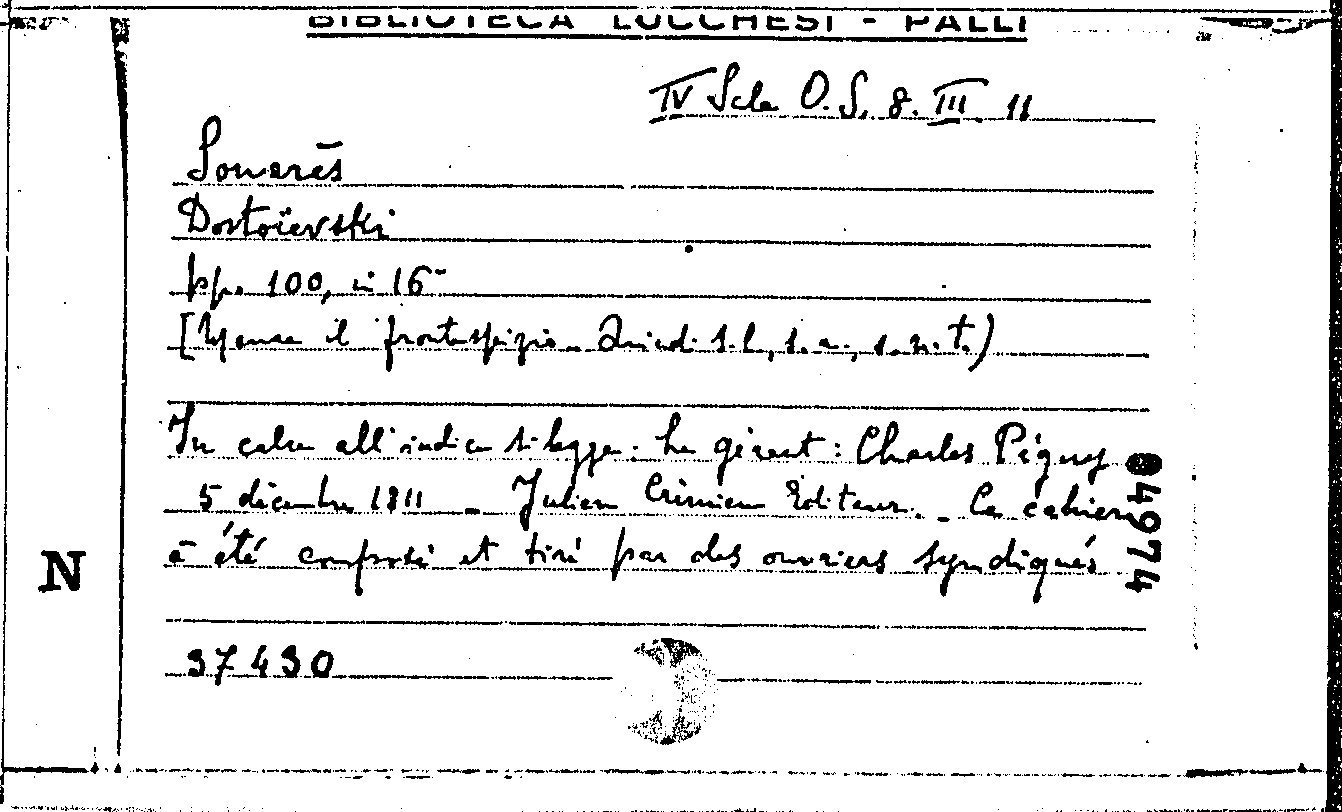 BIBLIOTECA LUCCHESI - PALLI
IV Scla O.S. 8. III. 11
Souarès
Dostoïevski
pp. 100, in 16°
[Manca il frontespizio. Quindi s.l., s.a., s.n.t.)
In calce all'indice si legge: Le gérant: Charles Péguy
5 décembre 1911 - Julien Crémieu Editeur. - Ce cahier
a été composé et tiré par des ouvriers syndiqués
04974
N
37430